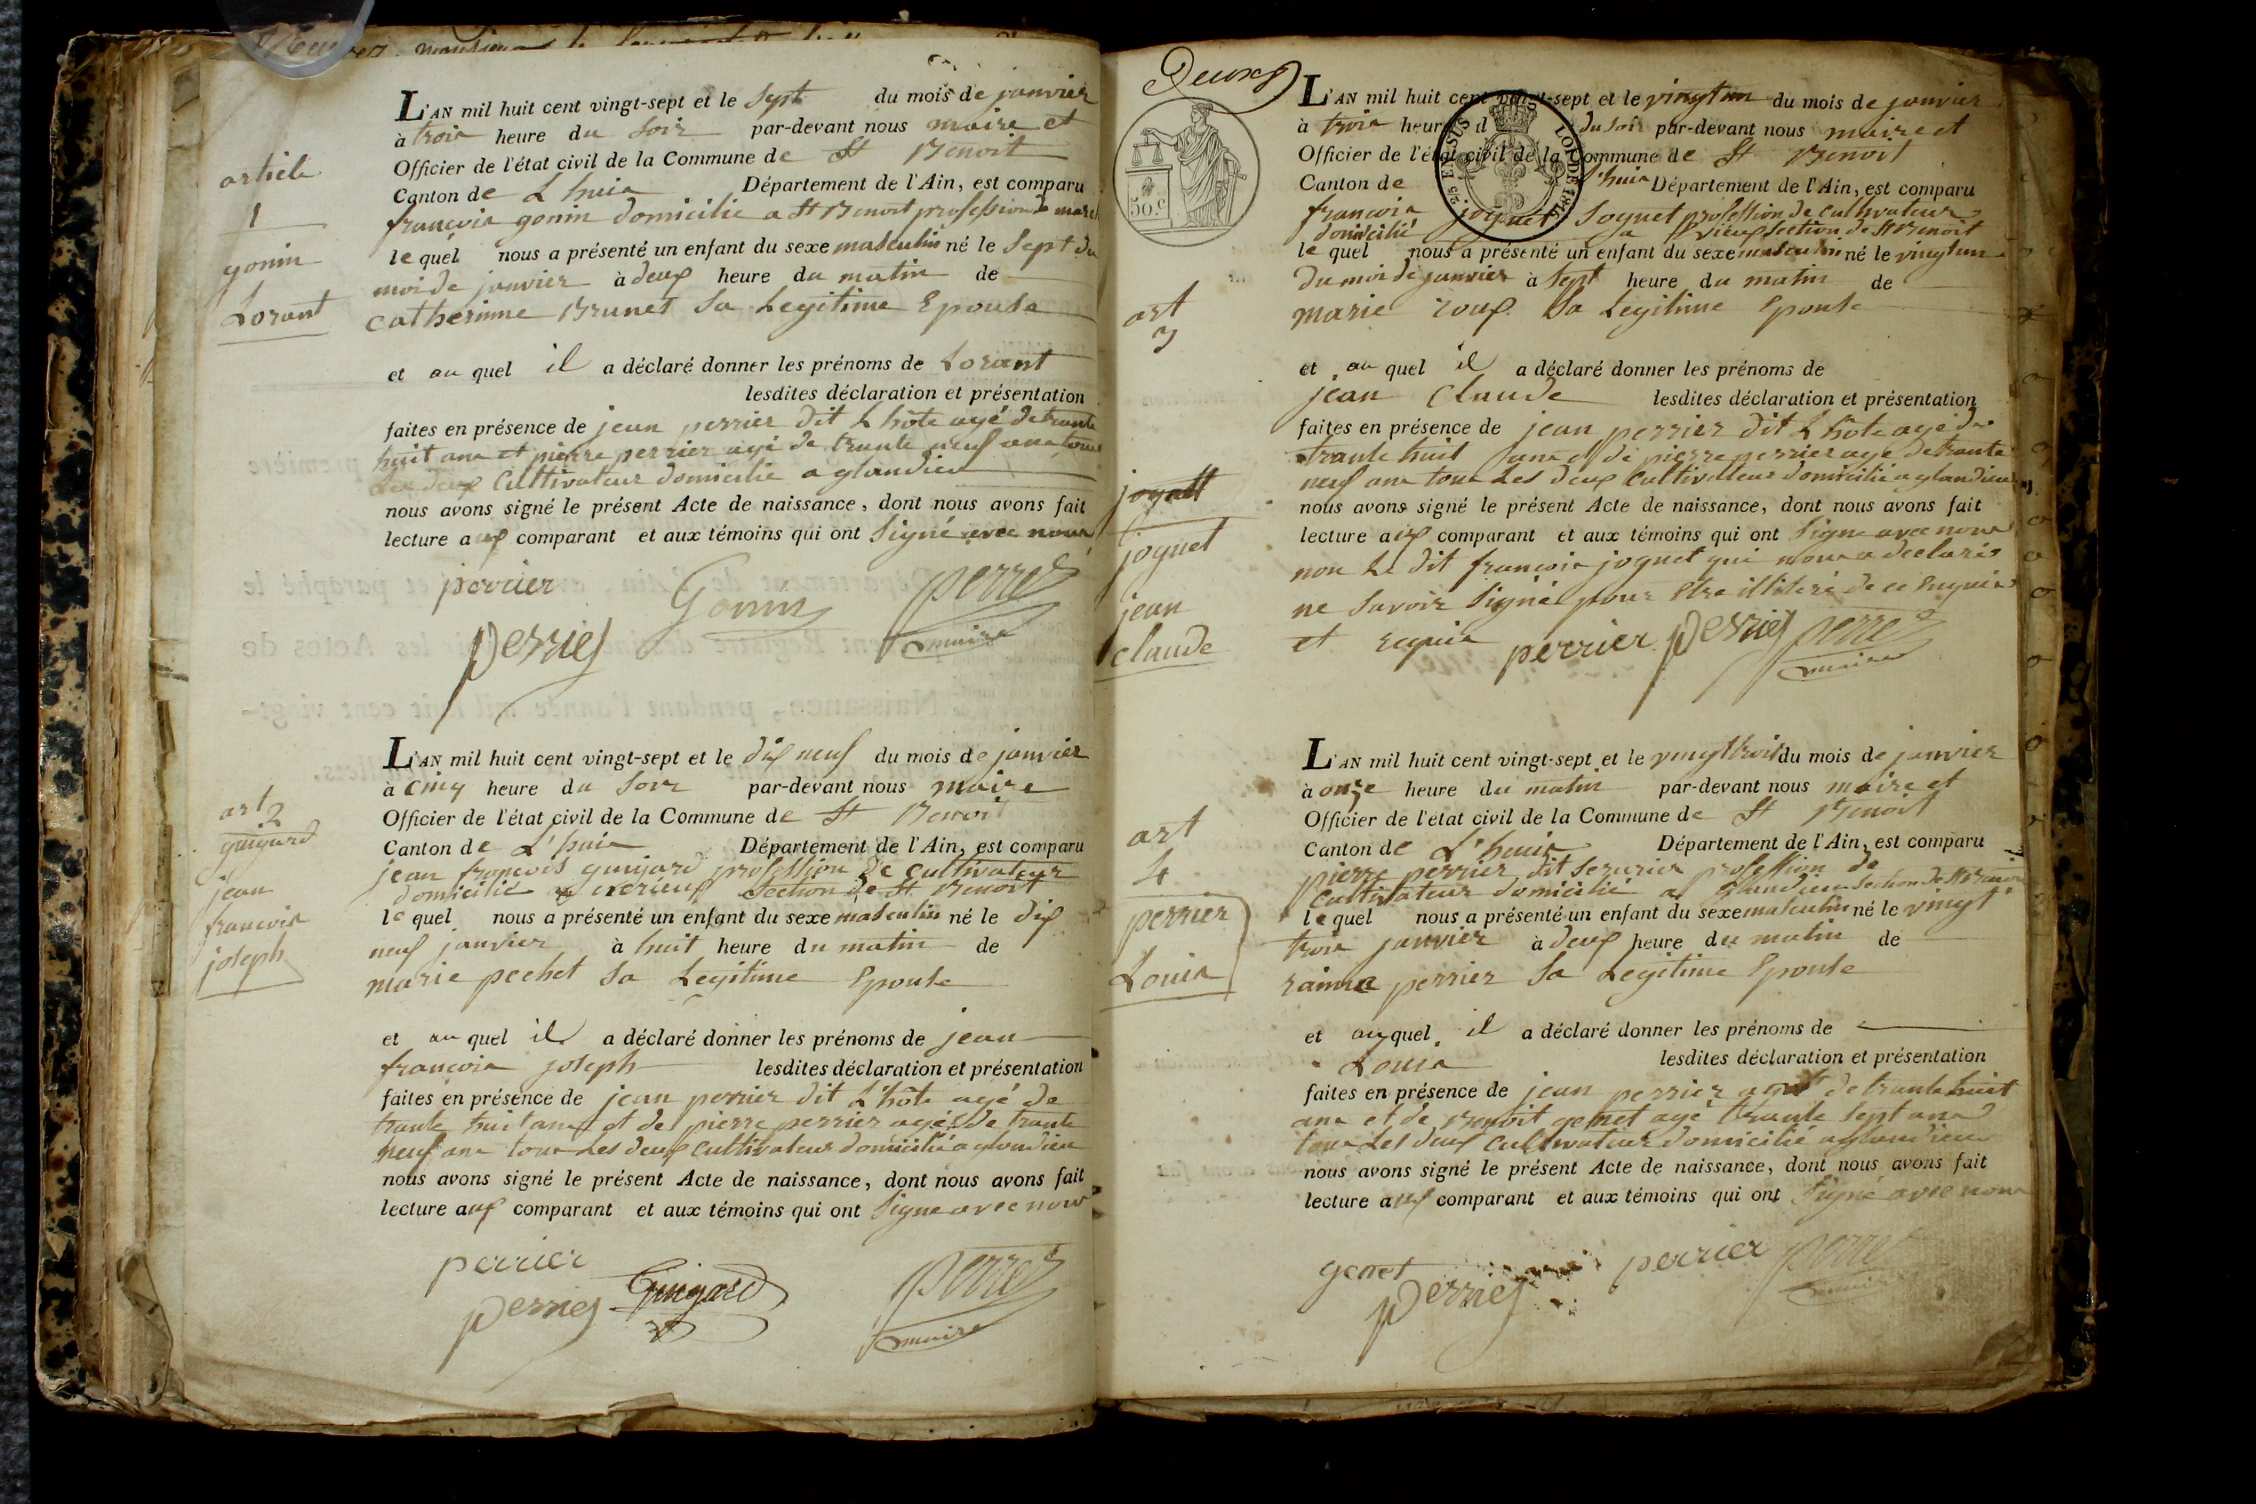 article
1
gonin
Lorant
L'AN mil huit cent vingt-sept et le sept du mois de janvier
à trois heure du soir par-devant nous maire et
Officier de l'état civil de la Commune de St Benoit
Canton de L'huis Département de l'Ain, est comparu
francois gonin domicilié a St Benoit profession de
le quel nous a présenté un enfant du sexe masculin né le sept du
moi de janvier à deux heure du matin de
catherinne Brunet sa Legitime Epouse
et au quel il a déclaré donner les prénoms de Lorant
lesdites déclaration et présentation
faites en présence de jean perrier dit L'hôte agé de trante
huit ans et pierre perrier agé de trante neuf ans tous
Les deux Cultivateur domicilié a glandieu
nous avons signé le présent Acte de naissance, dont nous avons fait
lecture aux comparant et aux témoins qui ont signé avec nous
perrier Gonin perret
perrier maire
art 2
guigard
jean
francois
joseph
L'AN mil huit cent vingt-sept et le dix neuf du mois de janvier
à cinq heure du soir par-devant nous maire
Officier de l'état civil de la Commune de St Benoit
Canton de L'huis Département de l'Ain, est comparu
jean françois guigard profession de cultivateur
domicilié a section de St Benoit
le quel nous a présenté un enfant du sexe masculin né le dix
neuf janvier à huit heure du matin de
marie pechet sa Legitime Epouse
et au quel il a déclaré donner les prénoms de jean
francois joseph lesdites déclaration et présentation
faites en présence de jean perrier dit L'hôte agé de
trante huit ans et de pierre perrier agé de trante
neuf ans tous Les deux cultivateur domicilié a glandieu
nous avons signé le présent Acte de naissance, dont nous avons fait
lecture aux comparant et aux témoins qui ont signé avec nous
perrier
perrier Guigard perret
maire
Deux
50 c
25 EN SUS LOI DE 1816
art
3
joguet
jean
claude
L'AN mil huit cent vingt-sept et le vingt un du mois de janvier
à trois heure d du soir par-devant nous maire et
Officier de l'état civil de la Commune de St Benoit
Canton de L'huis Département de l'Ain, est comparu
francois joguet joguet profession de cultivateur
domicilié a section de St Benoit
le quel nous a présenté un enfant du sexe masculin né le vingt un
du moi de janvier à sept heure du matin de
marie roux sa Legitime Epouse
et au quel il a déclaré donner les prénoms de
jean Claude lesdites déclaration et présentation
faites en présence de jean perrier dit L'hôte agé de
trante huit ans et de pierre perrier agé de trante
neuf ans tous Les deux Cultivateur domicilié a glandieu
nous avons signé le présent Acte de naissance, dont nous avons fait
lecture aux comparant et aux témoins qui ont signé avec nous
non Le dit francois joguet qui nous a declaré
ne savoir signé pour Etre illiteré de ce Enquis
et Requis perrier perrier perret
maire
art
4
perrier
Louis
L'AN mil huit cent vingt-sept et le vingt trois du mois de janvier
à onze heure du matin par-devant nous maire et
Officier de l'état civil de la Commune de St Benoit
Canton de L'huis Département de l'Ain, est comparu
pierre perrier dit serurier profession de
Cultivateur domicilié a glandieu section de St Benoit
le quel nous a présenté un enfant du sexe masculin né le vingt
trois janvier à deux heure du matin de
perrier sa Legitime Epouse
et au quel il a déclaré donner les prénoms de
Louis lesdites déclaration et présentation
faites en présence de jean perrier agé de trante huit
ans et de Benoit genet agé trante sept ans
tous Les deux Cultivateur domicilié a glandieu
nous avons signé le présent Acte de naissance, dont nous avons fait
lecture aux comparant et aux témoins qui ont signé avec nous
genet perrier perret
perrier